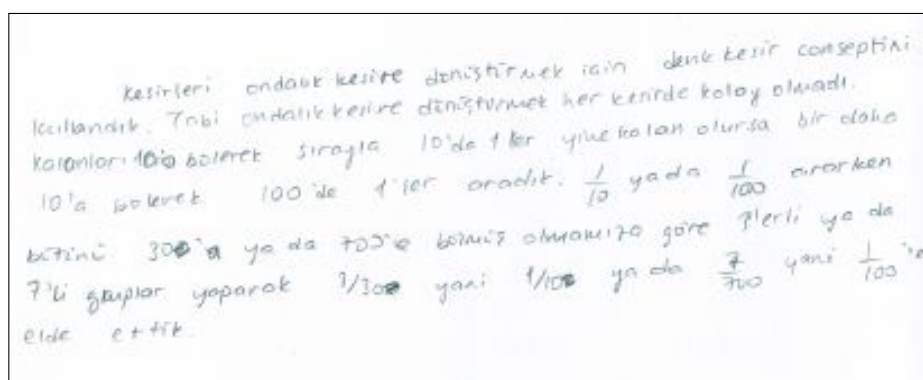 Kesirleri ondalık kesire dönüştürmek için denk kesir conseptini
kullandık. Tabi ondalık kesire dönüştürmek her kesirde kolay olmadı.
kalanları 10'a bölerek sırayla 10'da 1'ler yine kalan olursa bir daha
10'a bölerek 100'de 1'ler aradık. 1/10 yada 1/100 ararken
bütünü 30'a ya da 700'e bölmüş olmamıza göre 3'lerli ya da
7'li gruplar yaparak 3/30 yani 1/10 ya da 7/700 yani 1/100'i
elde ettik.